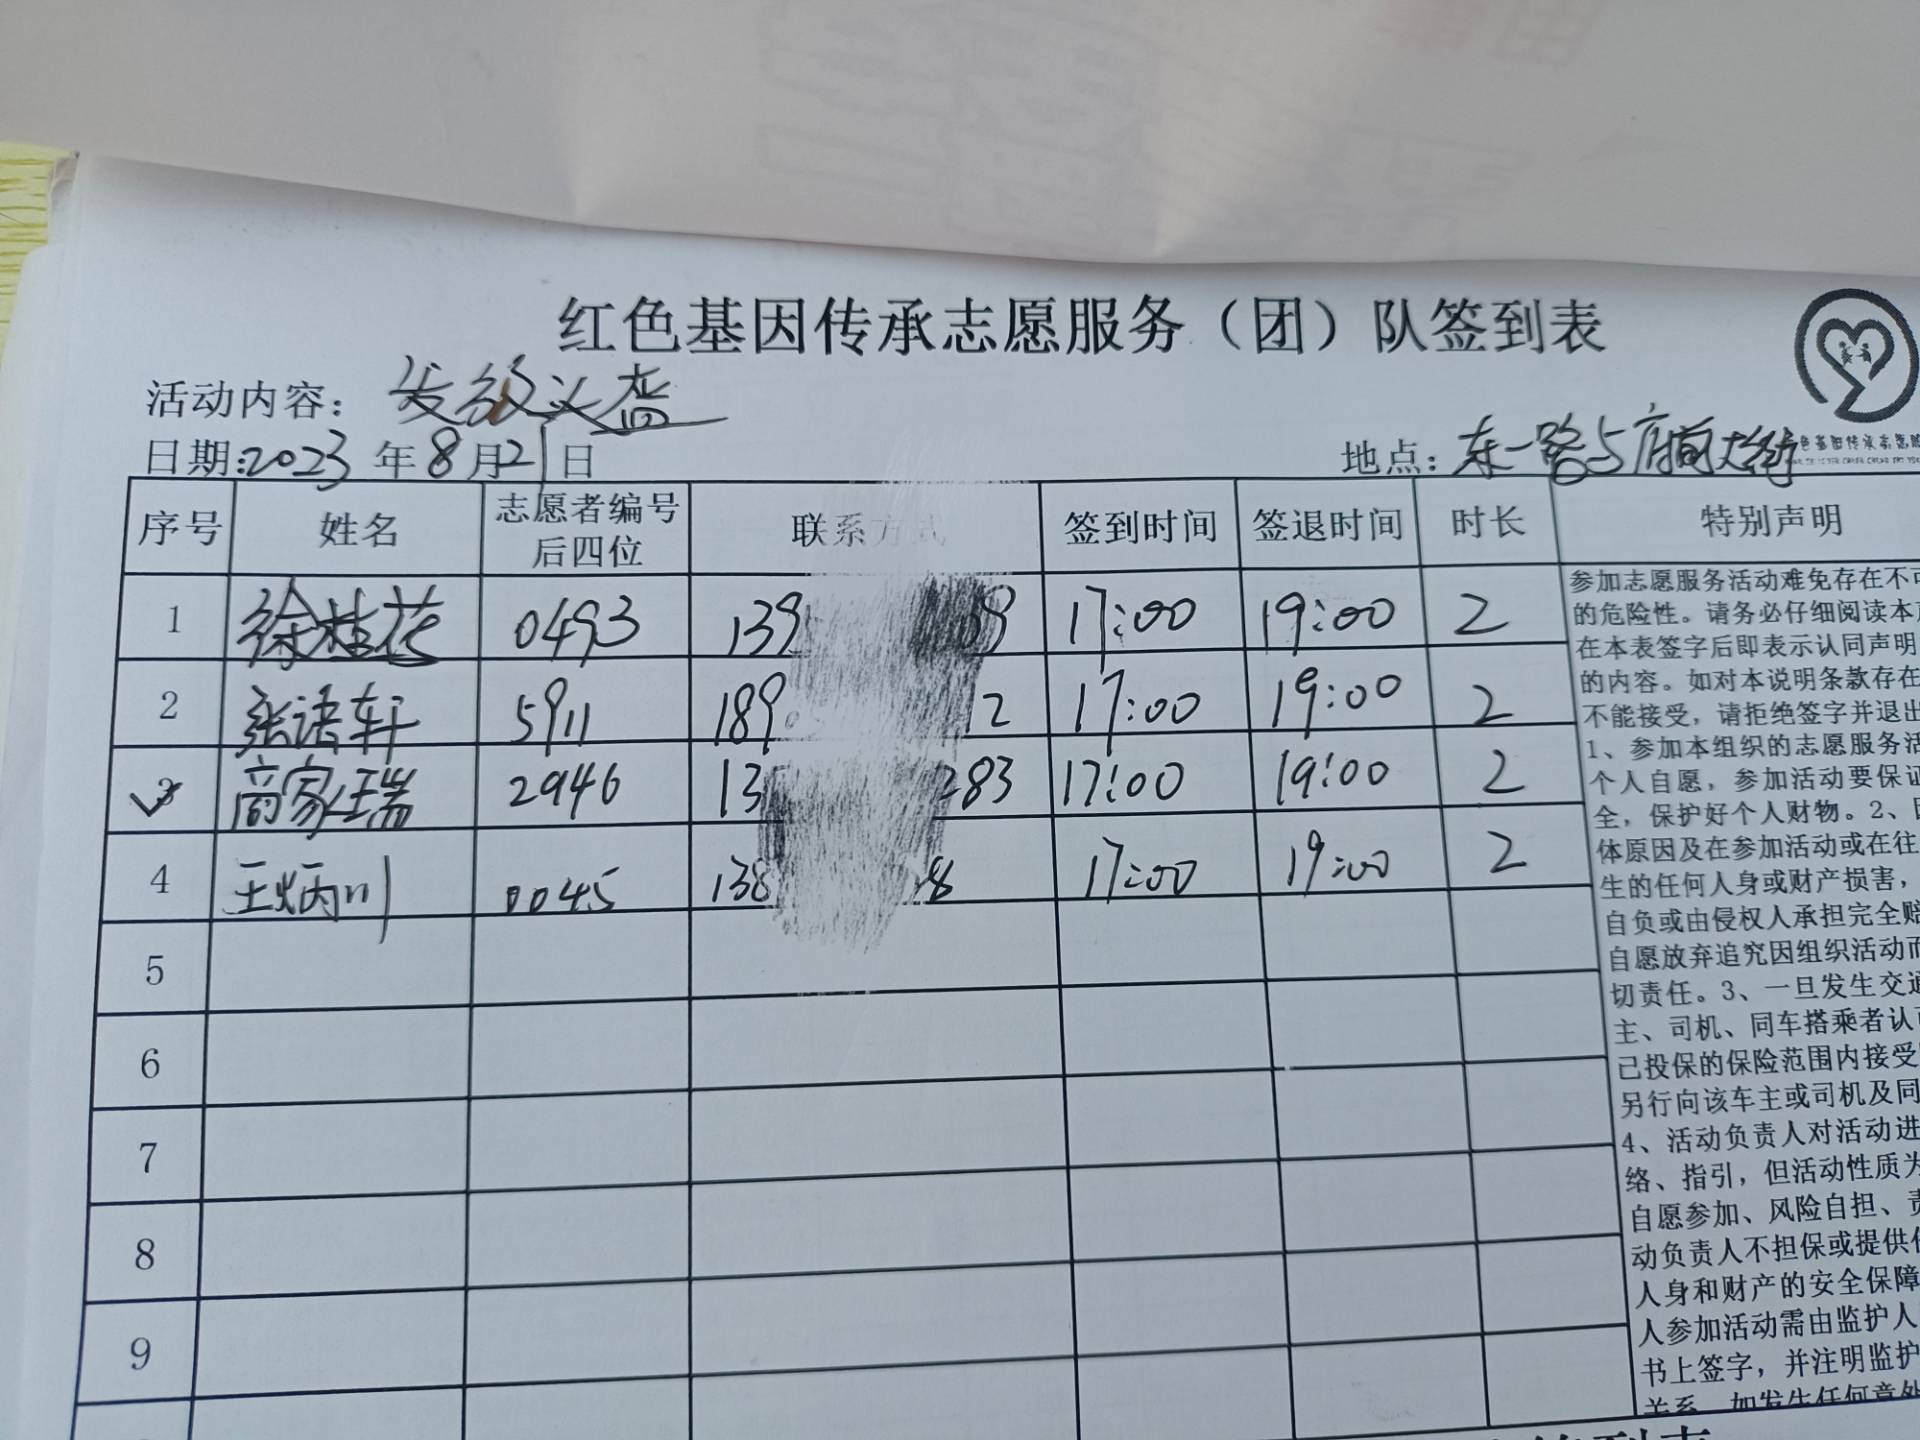 红色基因传承志愿服务（团）队签到表
活动内容：
日期：2023年8月21日
地点：东一路与府前大街
序号 姓名 志愿者编号后四位 联系方式 签到时间 签退时间 时长 特别声明
1 徐桂花 0493 139 39 17:00 19:00 2
2 张语轩 5911 189 2 17:00 19:00 2
3 商家瑞 2946 13 283 17:00 19:00 2
4 王炳川 0045 138 8 17:00 19:00 2
5
6
7
8
9
参加志愿服务活动难免存在不可
的危险性。请务必仔细阅读本声
在本表签字后即表示认同声明
的内容。如对本说明条款存在
不能接受，请拒绝签字并退出
1、参加本组织的志愿服务活
个人自愿，参加活动要保证
全，保护好个人财物。2、因
体原因及在参加活动或在往
生的任何人身或财产损害，
自负或由侵权人承担完全赔
自愿放弃追究因组织活动而
切责任。3、一旦发生交通
主、司机、同车搭乘者认可
已投保的保险范围内接受
另行向该车主或司机及同
4、活动负责人对活动进
络、指引，但活动性质为
自愿参加、风险自担、责
动负责人不担保或提供任
人身和财产的安全保障
人参加活动需由监护人
书上签字，并注明监护
关系。如发生任何意外